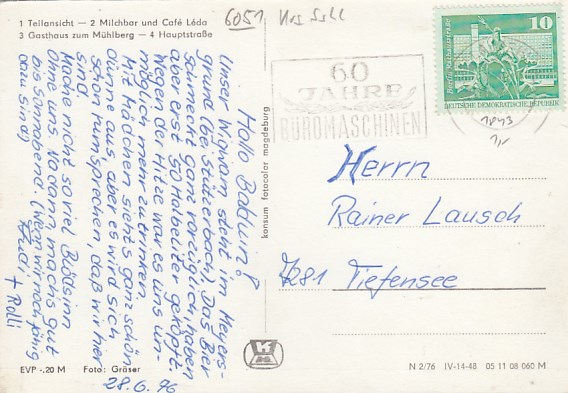 1 Teilansicht — 2 Milchbar und Café Léda
3 Gasthaus zum Mühlberg — 4 Hauptstraße
6051
60
JAHRE
BÜROMASCHINEN
10
DEUTSCHE DEMOKRATISCHE REPUBLIK
Hallo Baldun!
Unser Wigwam steht im Meyers-
grund (bei Stützerbach). Das Bier
schmeckt ganz vorzüglich, haben
aber erst 50 Halbeliter getopft.
Wegen der Hitze war es uns un-
möglich mehr zu trinken.
Mit Mädchen siehts ganz schön
dürre aus, aber es wird sich
schon rumsprechen, daß wir hier
sind.
Mache nicht so viel Blödsinn
ohne uns. Na dann machs gut
bis Sonnabend. (Wenn wir noch fähig
dazu sind)
Rudi
+ Rolli
28.6.76
konsum fotocolor magdeburg
Herrn
Rainer Lausch
7281 Tiefensee
EVP -,20 M Foto: Gräser
N 2/76 IV-14-48 05 11 08 060 M